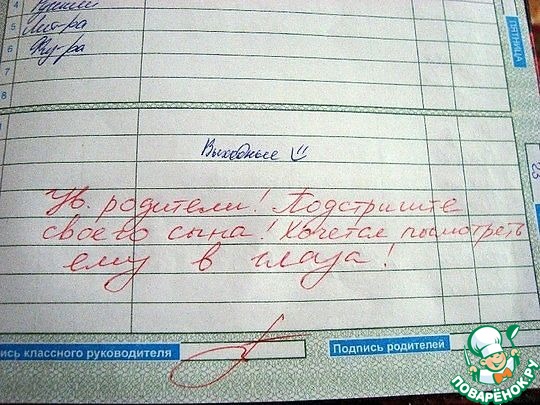 4
5 Лит-ра
6 Физ-ра
7
8
ПЯТНИЦА
23
Выходные
Ув. родители! Подстригите
своего сына! Хочется посмотреть
ему в глаза!
ись классного руководителя
Подпись родителей
ПОВАРЁНОК.РУ